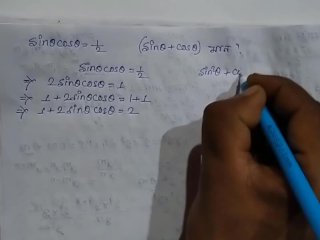 sinθcosθ = 1/2 (sinθ + cosθ) मान ?
sinθcosθ = 1/2 sinθ + c
⇒ 2sinθcosθ = 1
⇒ 1 + 2sinθcosθ = 1 + 1
⇒ 1 + 2sinθcosθ = 2